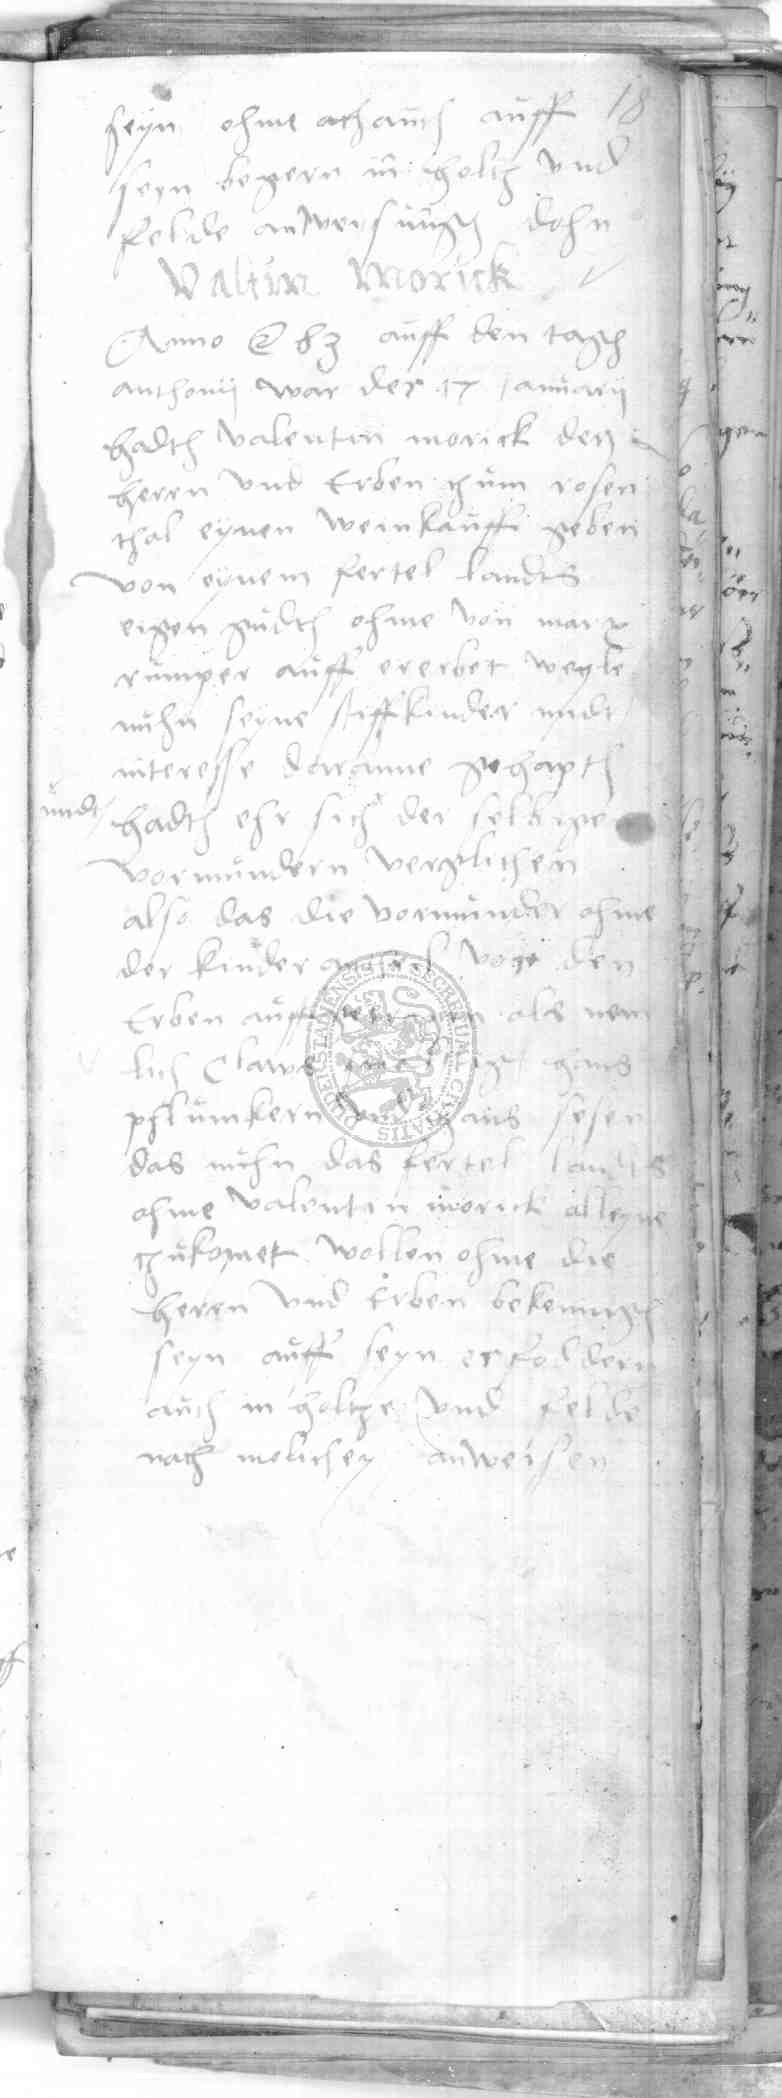 18
seyn ohme auch auff
seyn begern in holtz und
felde anweisungh dohn
Valtin Morick
Anno 83 auff den tagh
anthonij war der 17 Januarij
hadth valentin morick den
herrn und Erben zum rosen
thal eynen weinkauff geben
von eynem fertel landts
eigen gudth ohme von marx
rumper auff ererbet weyle
nuhn seyne stiffkinder midt
interesse daranne gehapth
hadth ehr sich der selbige
mudt
vormundern verglichen
also das die vormunder ohme
der kinder von den
Erben auff als nem
lich Clawes hans
pflumkern hans
das nuhn das fertel landts
ohme valentin morick alleyne
zukomet wollen ohme die
herrn und Erben bekennigh
seyn auff seyn erfoddern
auch in holtze und felde
nach anweisen
SIGILLUM CIVITATIS